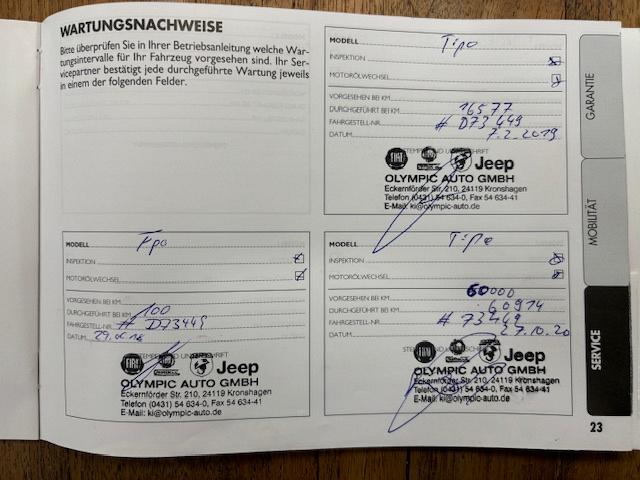 WARTUNGSNACHWEISE
Bitte überprüfen Sie in Ihrer Betriebsanleitung welche War-
tungsintervalle für Ihr Fahrzeug vorgesehen sind. Ihr Ser-
vicepartner bestätigt jede durchgeführte Wartung jeweils
in einem der folgenden Felder.
MODELL Tipo
INSPEKTION
MOTORÖLWECHSEL
VORGESEHEN BEI KM
DURCHGEFÜHRT BEI KM 16577
FAHRGESTELL-NR. # D73449
DATUM 7.2.2019
STEMPEL UND UNTERSCHRIFT
FIAT Jeep
OLYMPIC AUTO GMBH
Eckernförder Str. 210, 24119 Kronshagen
Telefon (0431) 54 634-0, Fax 54 634-41
E-Mail: ki@olympic-auto.de
MODELL Tipo
INSPEKTION
MOTORÖLWECHSEL
VORGESEHEN BEI KM
DURCHGEFÜHRT BEI KM 100
FAHRGESTELL-NR. # D73449
DATUM
FIAT Jeep
OLYMPIC AUTO GMBH
Eckernförder Str. 210, 24119 Kronshagen
Telefon (0431) 54 634-0, Fax 54 634-41
E-Mail: ki@olympic-auto.de
MODELL Tipo
INSPEKTION
MOTORÖLWECHSEL
VORGESEHEN BEI KM 60000
DURCHGEFÜHRT BEI KM 60914
FAHRGESTELL-NR. # 73449
DATUM 27.10.20
FIAT Jeep
OLYMPIC AUTO GMBH
Eckernförder Str. 210, 24119 Kronshagen
Telefon (0431) 54 634-0, Fax 54 634-41
E-Mail: ki@olympic-auto.de
GARANTIE
MOBILITÄT
SERVICE
23